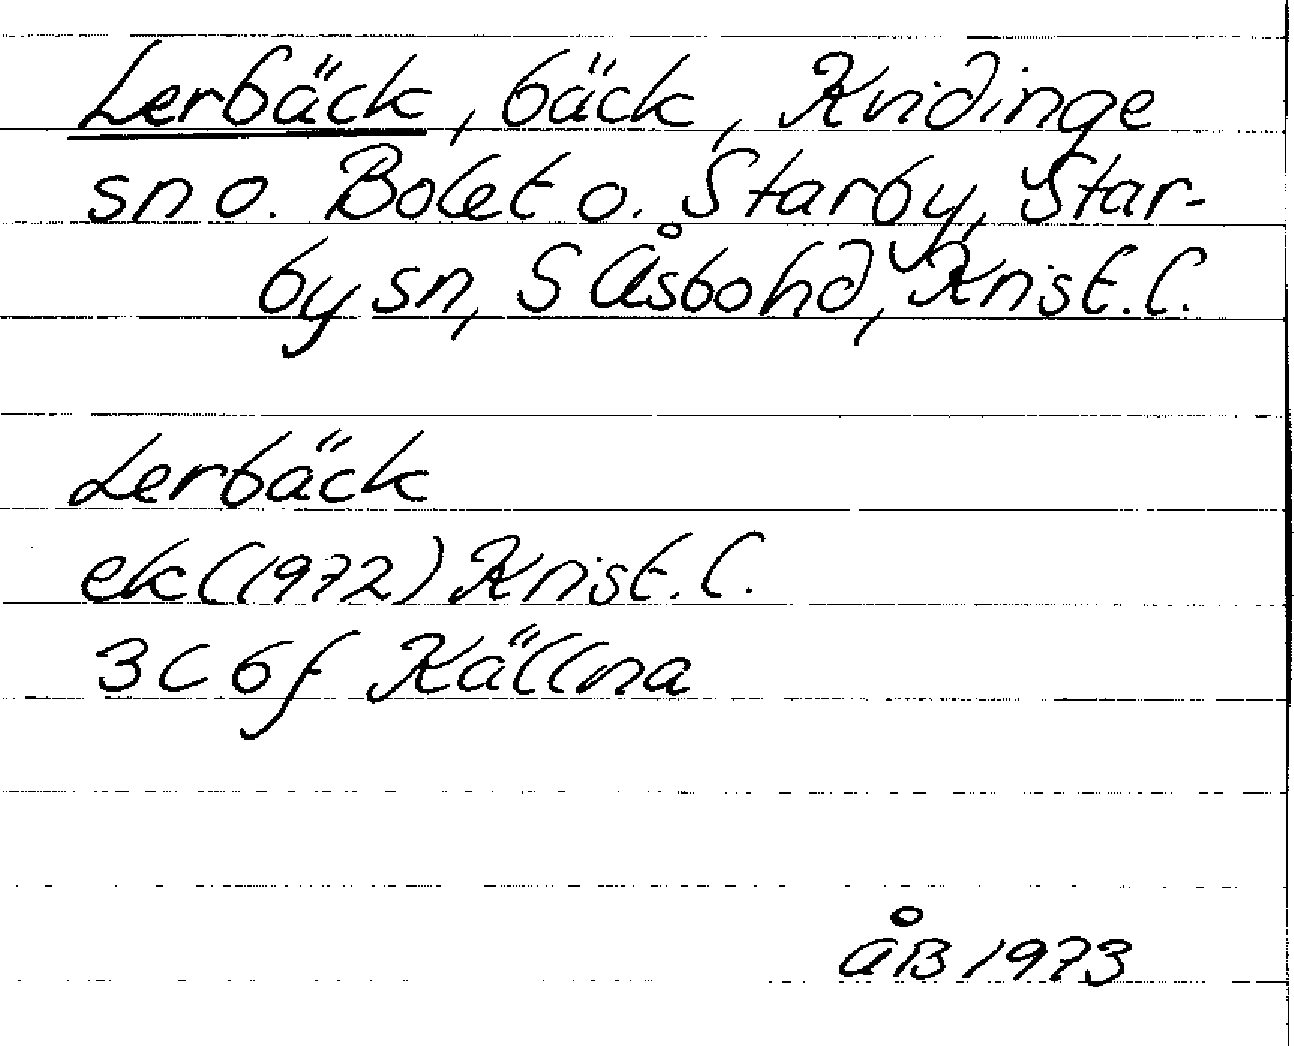 Lerbäck, bäck, Kvidinge
sn o. Bolet o. Starby, Star-
by sn, S Åsbo hd, Krist. l.
Lerbäck
ek (1972) Krist. l.
3C 6f Källna
ÅB 1973